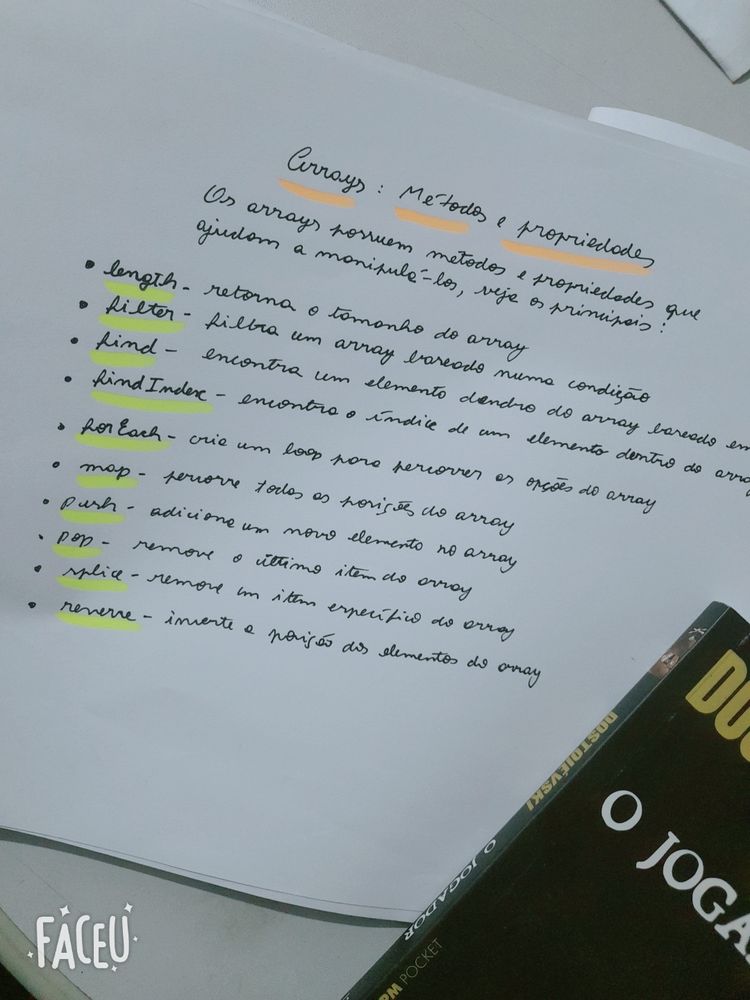 Arrays: Métodos e propriedades
Os arrays possuem metodos e propriedades que
ajudam a manipulá-los, veja os principais:
• length - retorna o tamanho do array
• filter - filtra um array baseado numa condição
• find - encontra um elemento dendro do array baseado em
• findIndex - encontra o índice de um elemento dentro do array
• forEach - cria um loop para percorrer as opções do array
• map - percorre todas as posições do array
• push - adiciona um novo elemento no array
• pop - remove o último item do array
• splice - remove um item específico do array
• reverse - inverte a posição dos elementos do array
DOSTOIÉVSKI
O JOGADOR
POCKET
DO
O JOGA
FACEU